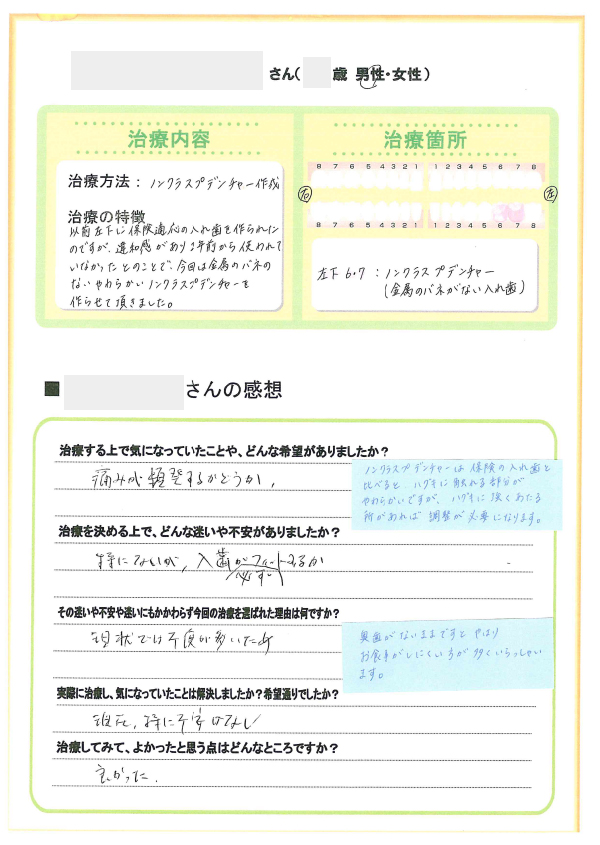 さん( 歳 男性・女性)
治療内容
治療方法: ノンクラスプデンチャー作成
治療の特徴
以前左下に保険適応の入れ歯を作られた
のですが、違和感があり 年前から使われて
いなかったとのことで、今回は金属のバネの
ないやわらかいノンクラスプデンチャーを
作らせて頂きました。
治療箇所
8 7 6 5 4 3 2 1 1 2 3 4 5 6 7 8
右 左
8 7 6 5 4 3 2 1 1 2 3 4 5 6 7 8
左下6・7 : ノンクラスプデンチャー
(金属のバネがない入れ歯)
■ さんの感想
治療する上で気になっていたことや、どんな希望がありましたか?
痛みが頻発するかどうか、
ノンクラスプデンチャーは保険の入れ歯と
比べると ハグキに触れる部分が
やわらかいですが、ハグキに強くあたる
所があれば 調整が必要になります。
治療を決める上で、どんな迷いや不安がありましたか?
特にないが、入歯がフィットするか
その迷いや不安や迷いにもかかわらず今回の治療を選ばれた理由は何ですか?
現状では不便が多いため
奥歯がないままですと やはり
お食事がしにくい方が多くいらっしゃい
ます。
実際に治療し、気になっていたことは解決しましたか?希望通りでしたか?
現在、特に不 はなし
治療してみて、よかったと思う点はどんなところですか?
良かった.